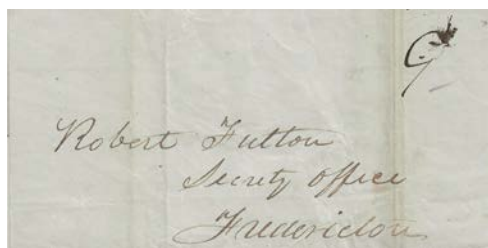 Robert Fulton
Secrety office
Fredericton